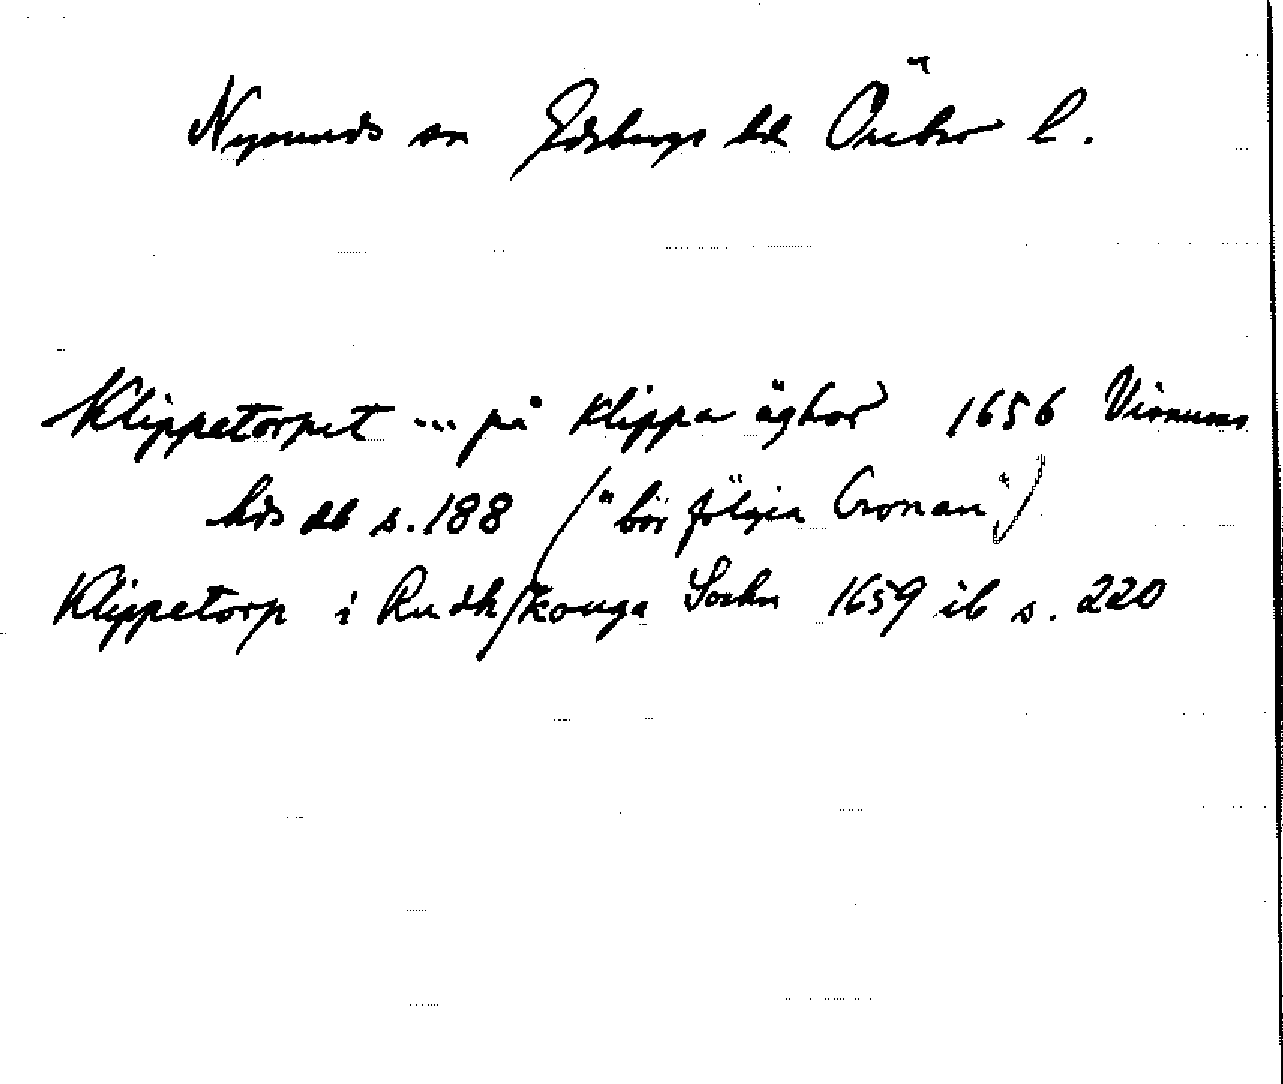 Nysunds sn Edsbergs hd Örebro l.
Klippetorpet ... på Klippa äghor 1656 Visnums
hds db s. 188 ("bör följia Cronan")
Klippetorp i Rudhskouga Sochn 1659 ib s. 220